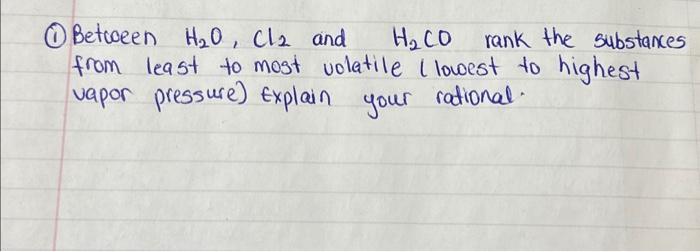 ① Between H₂O, Cl₂ and H₂CO rank the substances
from least to most volatile (lowest to highest
vapor pressure) Explain your rational.